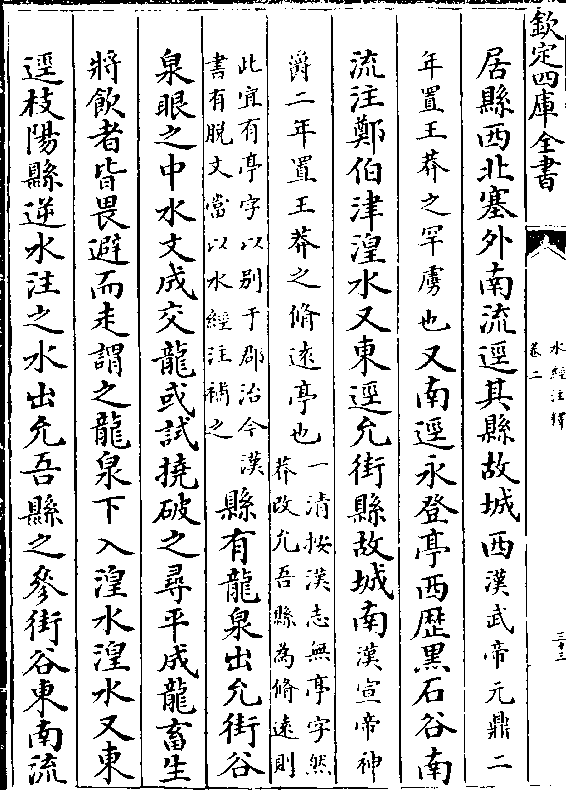 欽定四庫全書
水經注釋
卷二
三十三
居縣西北塞外南流逕其縣故城西漢武帝元鼎二
年置王莽之罕虜也又南逕永登亭西歴黒石谷南
流注鄭伯津湟水又東逕允街縣故城南漢宣帝神
爵二年置王莽之脩逺亭也一清按漢志無亭字然
莽改允吾縣為脩逺則
此宜有亭字以别于郡治今漢
書有脱文當以水經注補之
縣有龍泉出允街谷
泉眼之中水文成交龍或試撓破之尋平成龍畜生
將飲者皆畏避而走謂之龍泉下入湟水湟水又東
逕枝陽縣逆水注之水出允吾縣之參街谷東南流